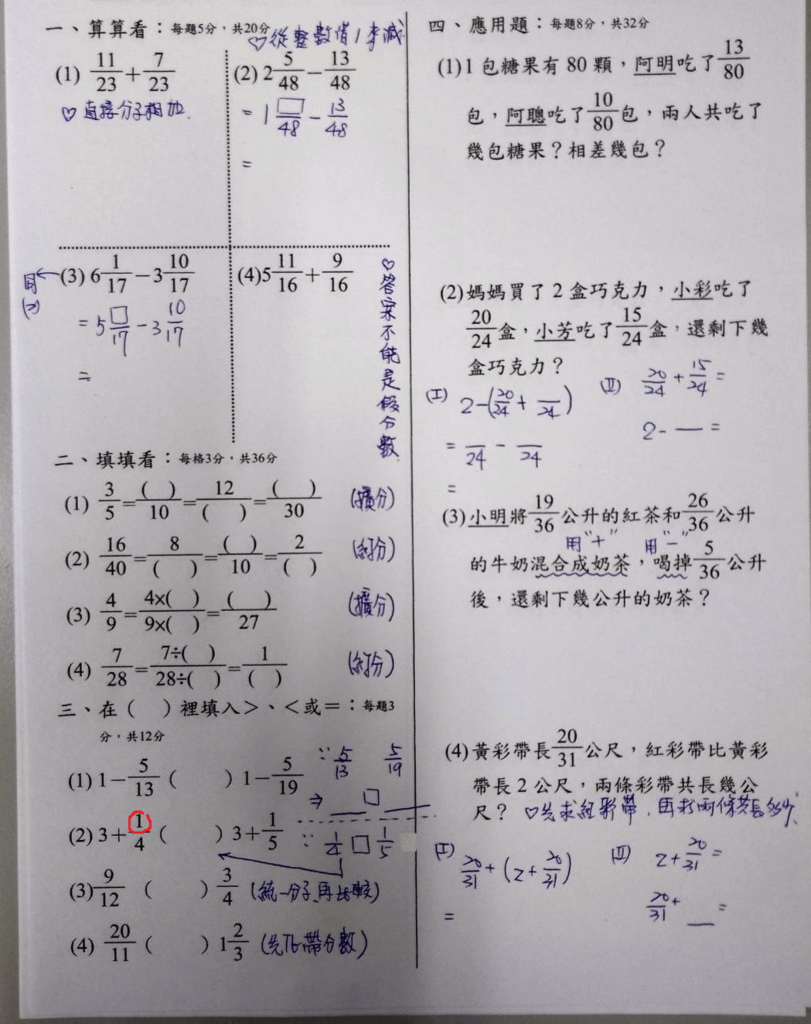 一、算算看：每題5分，共20分
♡從整數借1來減
(1) 11/23 + 7/23
♡直接分子相加.
(2) 2 5/48 - 13/48
= 1 □/48 - 13/48
=
同(2) ← (3) 6 1/17 - 3 10/17
= 5 □/17 - 3 10/17
=
(4) 5 11/16 + 9/16
♡答案不能是假分數.
二、填填看：每格3分，共36分
(1) 3/5 = ( )/10 = 12/( ) = ( )/30 (擴分)
(2) 16/40 = 8/( ) = ( )/10 = 2/( ) (約分)
(3) 4/9 = 4×( )/9×( ) = ( )/27 (擴分)
(4) 7/28 = 7÷( )/28÷( ) = 1/( ) (約分)
三、在（ ）裡填入>、<或=：每題3
分，共12分
(1) 1 - 5/13 ( ) 1 - 5/19 ∵ 5/13 5/19
⇒ __ □ __
(2) 3 + 1/4 ( ) 3 + 1/5 ∵ 1/4 □ 1/5
(3) 9/12 ( ) 3/4 (統一分子,再比較)
(4) 20/11 ( ) 1 2/3 (先化帶分數)
四、應用題：每題8分，共32分
(1) 1包糖果有80顆，阿明吃了13/80
包，阿聰吃了10/80包，兩人共吃了
幾包糖果？相差幾包？
(2) 媽媽買了2盒巧克力，小彩吃了
20/24盒，小芳吃了15/24盒，還剩下幾
盒巧克力？
(I) 2-(20/24 + __/24)
= __/24 - __/24
=
(II) 20/24 + 15/24 =
2 - __ =
(3) 小明將19/36公升的紅茶和26/36公升
用"+" 用"-"
的牛奶混合成奶茶，喝掉5/36公升
後，還剩下幾公升的奶茶？
(4) 黃彩帶長20/31公尺，紅彩帶比黃彩
帶長2公尺，兩條彩帶共長幾公
尺？ ♡先求紅彩帶.再求兩條共長多少
(I) 20/31 + (2 + 20/31)
=
(II) 2 + 20/31 =
20/31 + __ =